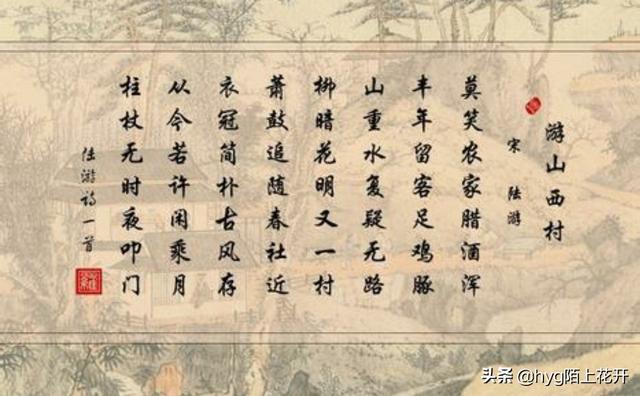 游山西村
宋 陆游
莫笑农家腊酒浑
丰年留客足鸡豚
山重水复疑无路
柳暗花明又一村
萧鼓追随春社近
衣冠简朴古风存
从今若许闲乘月
柱杖无时夜叩门
陆游诗一首
头条 @hyg陌上花开